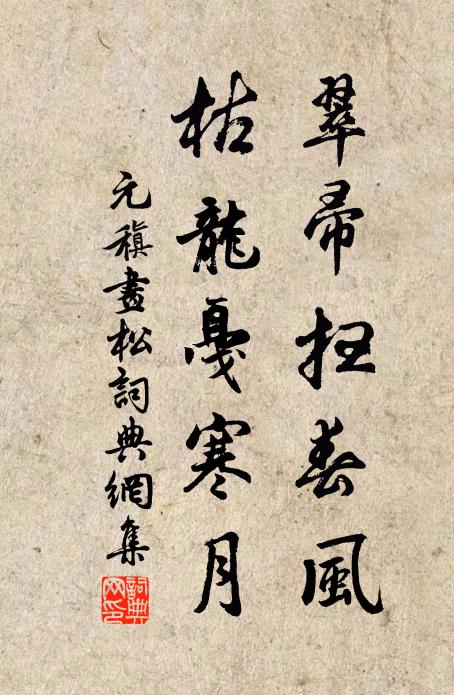 翠帚掃春風
枯龍戛寒月
元稹畫松詞典網集
詞典
网印